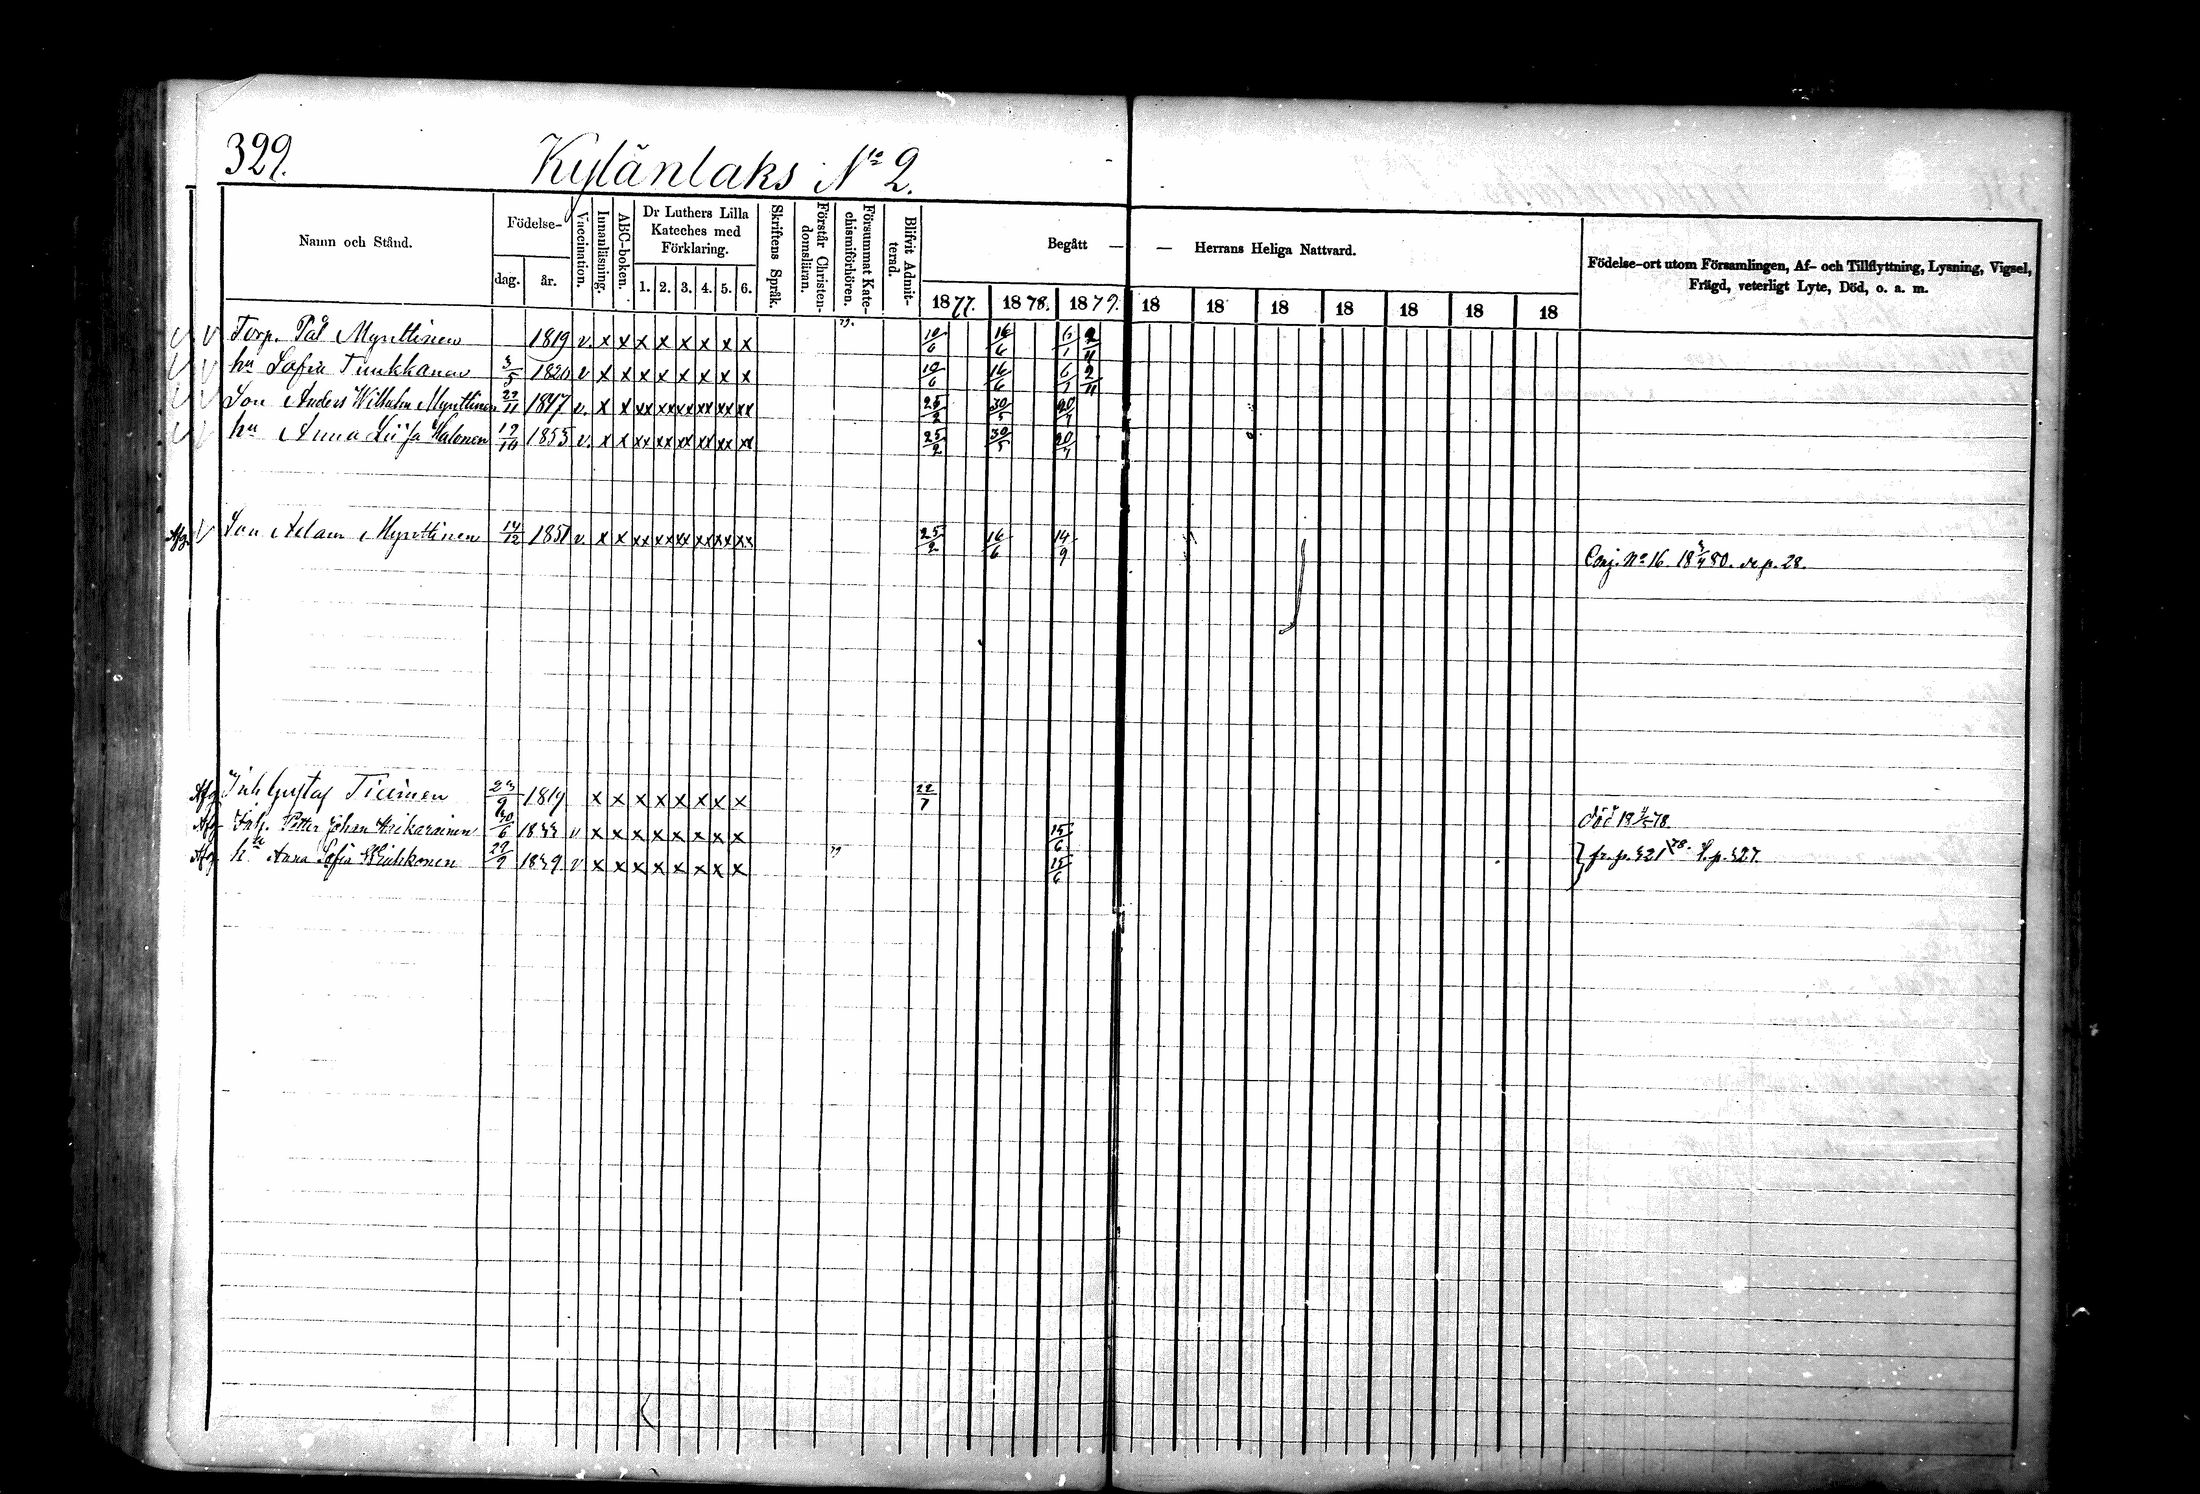 329.
Kylänlaks No 2.
Namn och Stånd.
Födelse-
dag.
år.
Vaccination.
Innanläsning.
ABC-boken.
Dr Luthers Lilla
Kateches med
Förklaring.
1. 2. 3. 4. 5. 6.
Skriftens Språk.
Förstår Christen-
domsläran.
Försummat Kate-
chismiförhören.
Blifvit Admit-
terad.
Begått — — Herrans Heliga Nattvard.
1877. 1878. 1879. 18 18 18 18 18 18 18
Födelse-ort utom Församlingen, Af- och Tillflyttning, Lysning, Vigsel,
Frägd, veterligt Lyte, Död, o. a. m.
Torp. Pål Mynttinen 1819 v. x x x x x x x x 10/6 16/6 6/1 2/11
hu Sofia 3/5 1820 v x x x x x x x x 10/6 16/6 6/1 2/11
Son Anders Wilhelm Mynttinen 1847 v. x x xx xx xx xx xx xx 25/2 30/5 20/7
hu Anna Liisa Halonen 1853 v. x x xx xx xx xx xx xx 25/2 30/5 20/7
Afg. Son Adam Mynttinen 14/12 1851 v. x x xx xx xx xx xx xx 25/2 16/6 14/9
Conj. No 16. 18 80. p. 28.
Afg Inh Gustaf 1819 x x x x x x x x 22/7
död 18 78.
Afg Inh. Petter Johan 1833 v x x x x x x x x 15/6
Afg hu Anna Sofia 1839 v x x x x x x x x 15/6
fr. p. 321 78. p. 327.